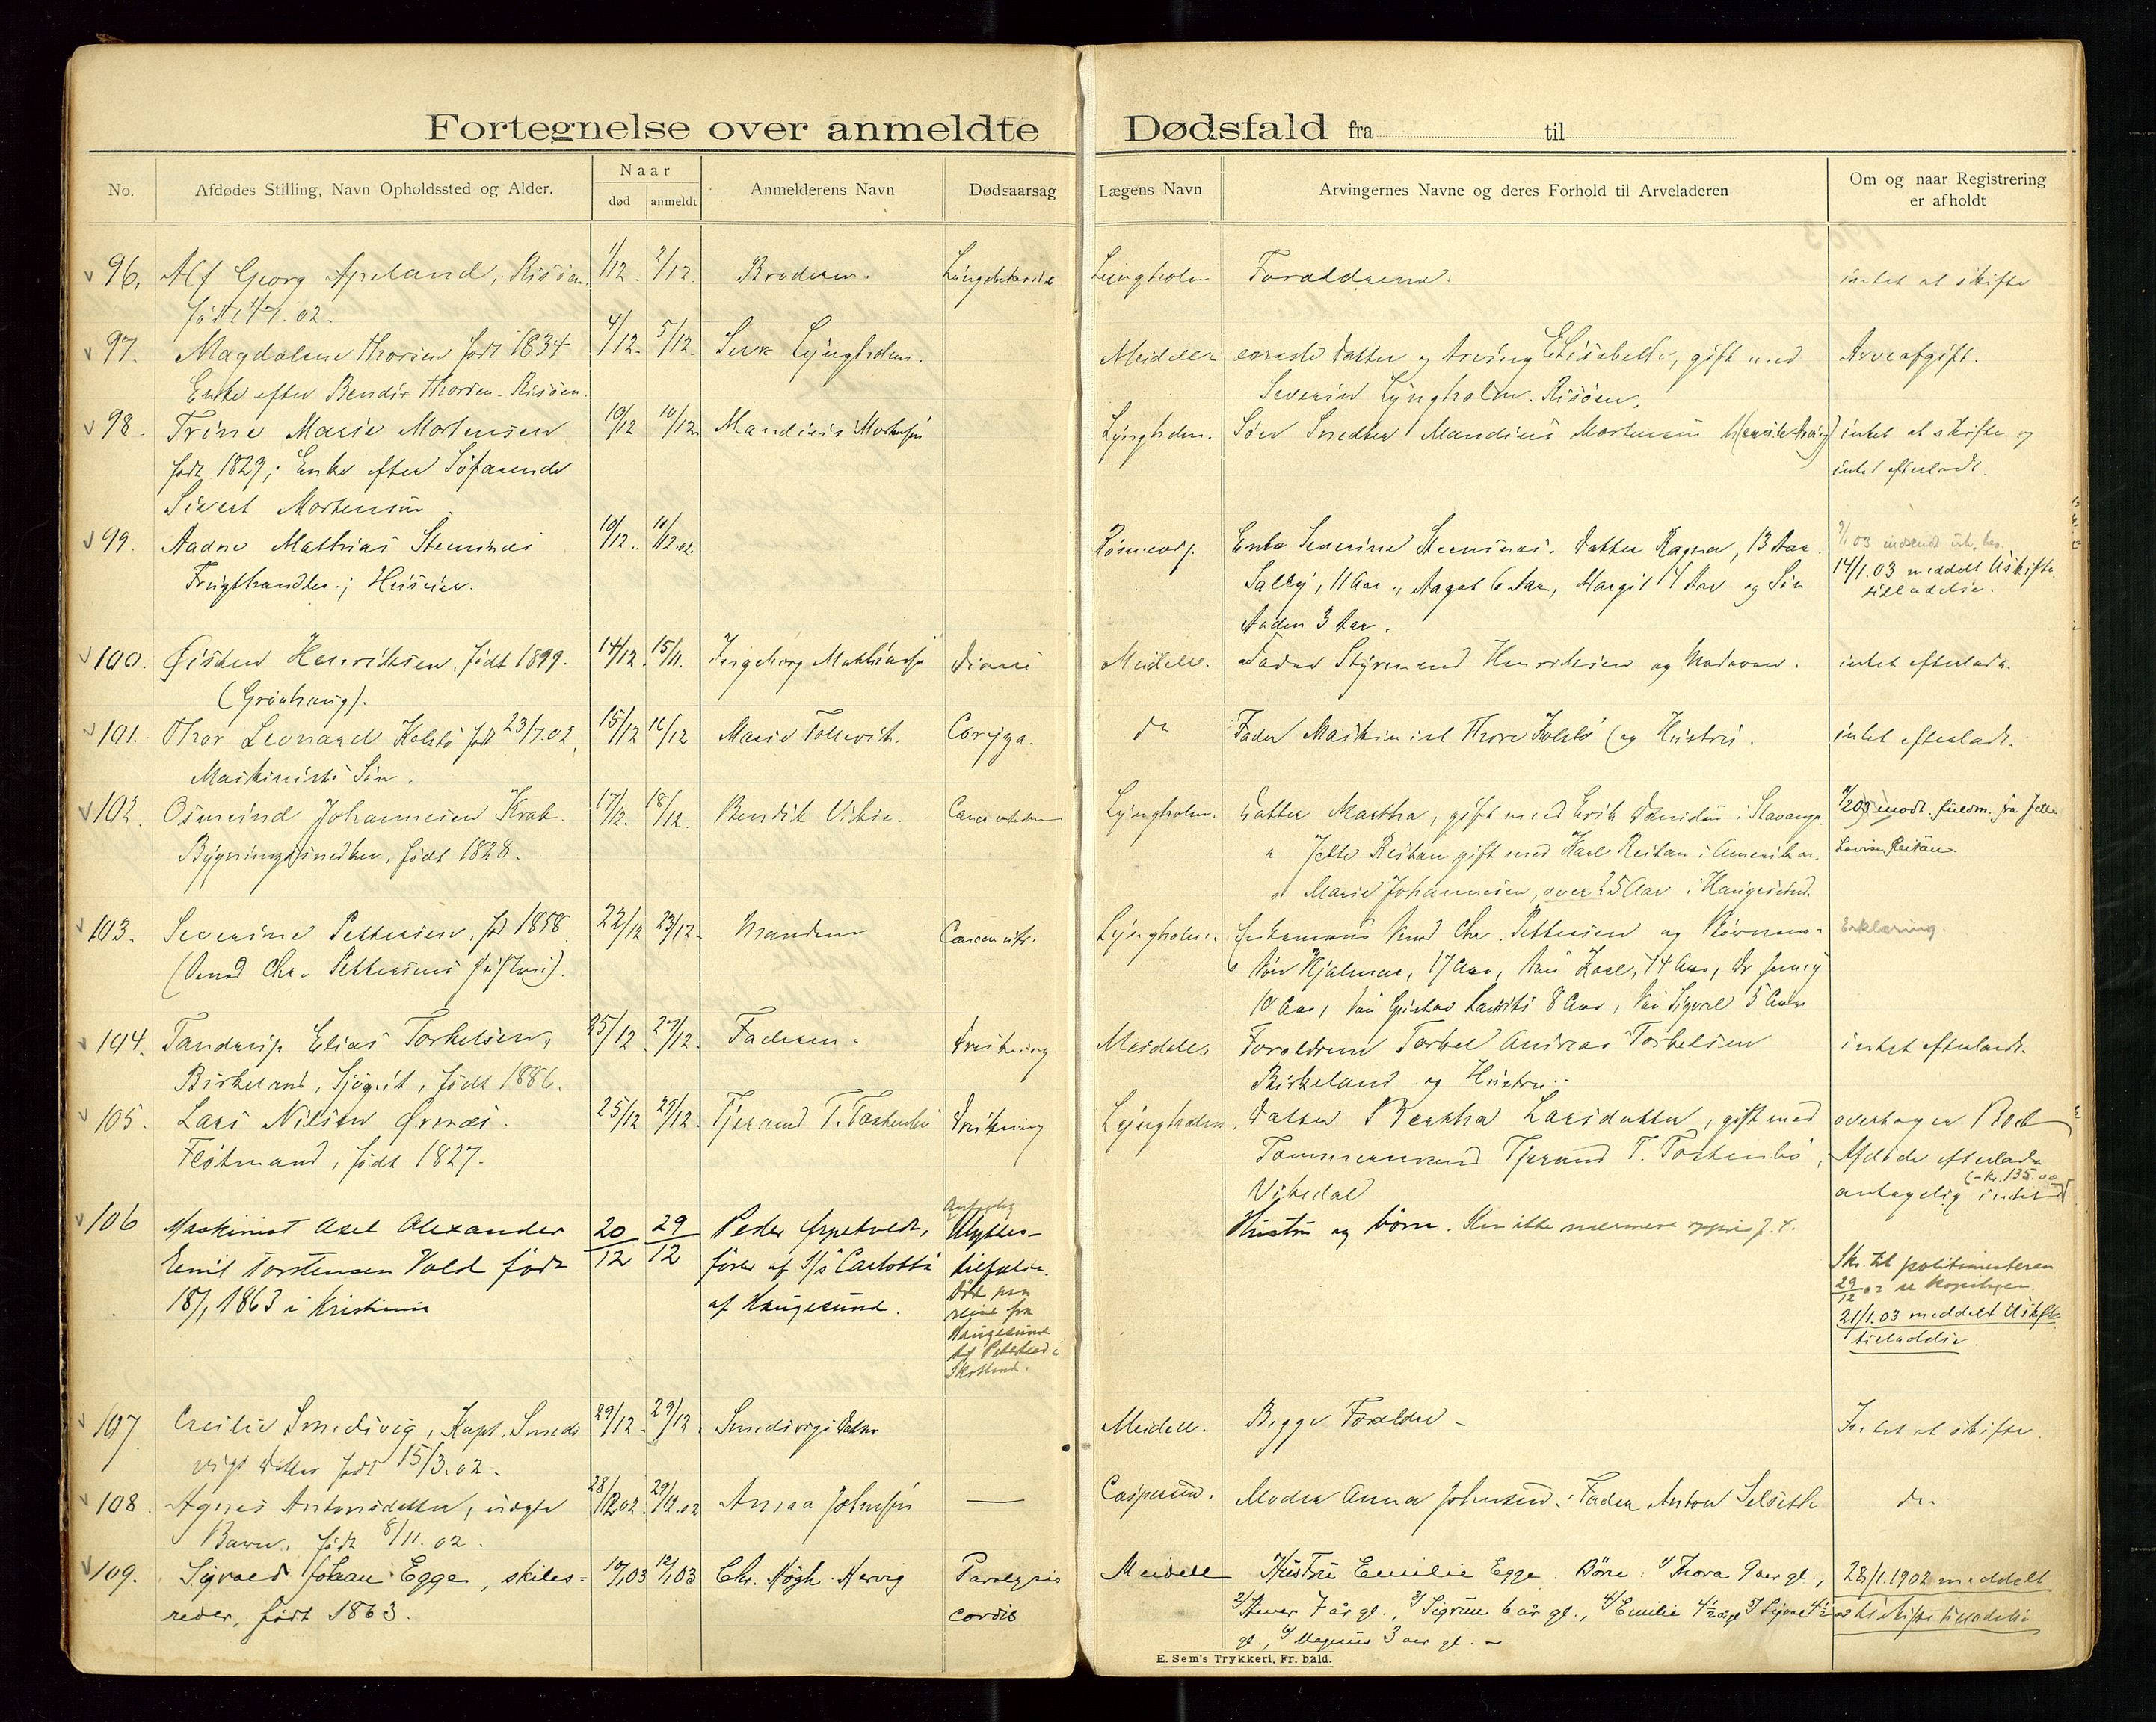 Fortegnelse over anmeldte Dødsfald fra til
No.
Afdødes Stilling, Navn Opholdssted og Alder.
Naar
død
anmeldt
Anmelderens Navn
Dødsaarsag
Lægens Navn
Arvingernes Navne og deres Forhold til Arveladeren
Om og naar Registrering
er afholdt
96. Alf Georg Apeland, Risöen 1/12. 2/12. Broderen. Lyngholm Forældrene. intet at skifte
97. Magdalene Thorsen født 1834 4/12. 5/12. Lyngholm. Meidell eneste datter og Arving Elisabeth, gift med Arveafgift.
Enke efter Bendix Thorsen Risöen. Severin Lyngholm. Risöen.
98. Trine Marie Mortensen 10/12 10/12 Mandius Mortensen Lyngholm. Sön Snedker Mandius Mortensen intet at skifte og
født 1829; Enke efter Söfarende intet efterladt.
Sivert Mortensen.
99. Aadne Mathias Stensnæs 10/12. 10/12.02. Enke Severine Stensnæs. Datter Ragna, 13 Aar. 9/1.03
Frugthandler; Huseier. Sally, 11 Aar, Aagot 6 Aar, Margit 14 Aar og Sön 14/1.03 meddelt Uskifte-
Aaden 3 Aar. tilladelse.
100. Øistein Henriksen, født 1899. 14/12. 15/11. Ingeborg Mathiasen Meidell. Fader Styrmand Henriksen og Moderen. intet efterladt.
(Grönhaug).
101. Thor Leonard Kolstö født 23/7.02, 15/12 16/12 Marie Tollevik. Coryza. do Fader Maskinist Thore Kolstö og Hustru. intet efterladt.
Maskinists Sön.
102. Osmund Johannesen Krab- 17/12. 18/12. Bendik Vikse. Lyngholm. Datter Martha, gift med Erik Danielsen i Stavanger.
Bygningssnedker, født 1828. " Jelle Reitan gift med Karl Reitan i Amerika. Lovise Reitan.
" Marie Johannesen, over 25 Aar i Haugesund.
103. Severine Pettersen, fd 1858 22/12 23/12. Manden Lyngholm. Enkemand Knud Chr. Pettersen og Börnene Erklæring.
(Knud Chr. Pettersens Hustru). Sön Hjalmar, 17 Aar, Sön Karl, 14 Aar, Dr Jenny
10 Aar, Sön Gustav Laurits 8 Aar, Sön Sigval 5 Aar
104. Tandrup Elias Torkelsen, 25/12 27/12. Faderen. Drukning Meidell Forældrene Torkel Andreas Torkelsen intet efterladt.
Birkeland, Sjögut, født 1886. Birkeland og Hustru.
105. Lars Nilsen Örnæs. 25/12 29/12. Tjerand T. Tostenbö Drukning Lyngholm. Datter Bertha Larsdatter, gift med overtager Boet
Flötmand, født 1827. Tömmermand Tjerand T. Tostenbö, Afdöde efterlader
Vikedal antagelig intet (- Kr. 135.00)
106 Maskinist Axel Alexander 20/12 29/12 Peder Erpetvedt, Antagelig Ulykkes- Hustru og börn. Kan ikke nærmere opgives f. t.
Emil Torstensen Vold født förer af S/S Carlotta tilfælde. Skr. til politimesteren
18/1 1863 i Kristiania af Haugesund. Död paa 29/12 02 se kopibogen.
reise fra 21/1.03 meddelt Uskifte-
Haugesund tilladelse.
til Peterhead i
Skotland.
107 Cecilie Smedsvig, Kapt. Smeds- 29/12. 29/12. Meidell. Begge Forældre - Intet at skifte.
vigs datter født 15/3.02.
108. Agnes Antonsdatter, uægte 28/12.02. 29/12.02 Anna Johnsen — Caspersen. Moder Anna Johnsen. Fader Anton Selseth do
Barn, født 8/11.02.
109. Sigvald Johan Egge, skibs- 10/1.03 12/1.03 Chr. Högh. Hervig Paralysis Meidell Hustru Emilie Egge. Börn: 1) Thora 9 aar gl., 28/1.1902 meddelt
reder, født 1863. cordis 2) Hener 7 år gl., 3) Sigrun 6 år gl., 4) Emilie 4½ år gl uskiftetilladelse
gl., 6) Magnus 3 aar gl. -
E. Sem's Trykkeri, Fr. hald.